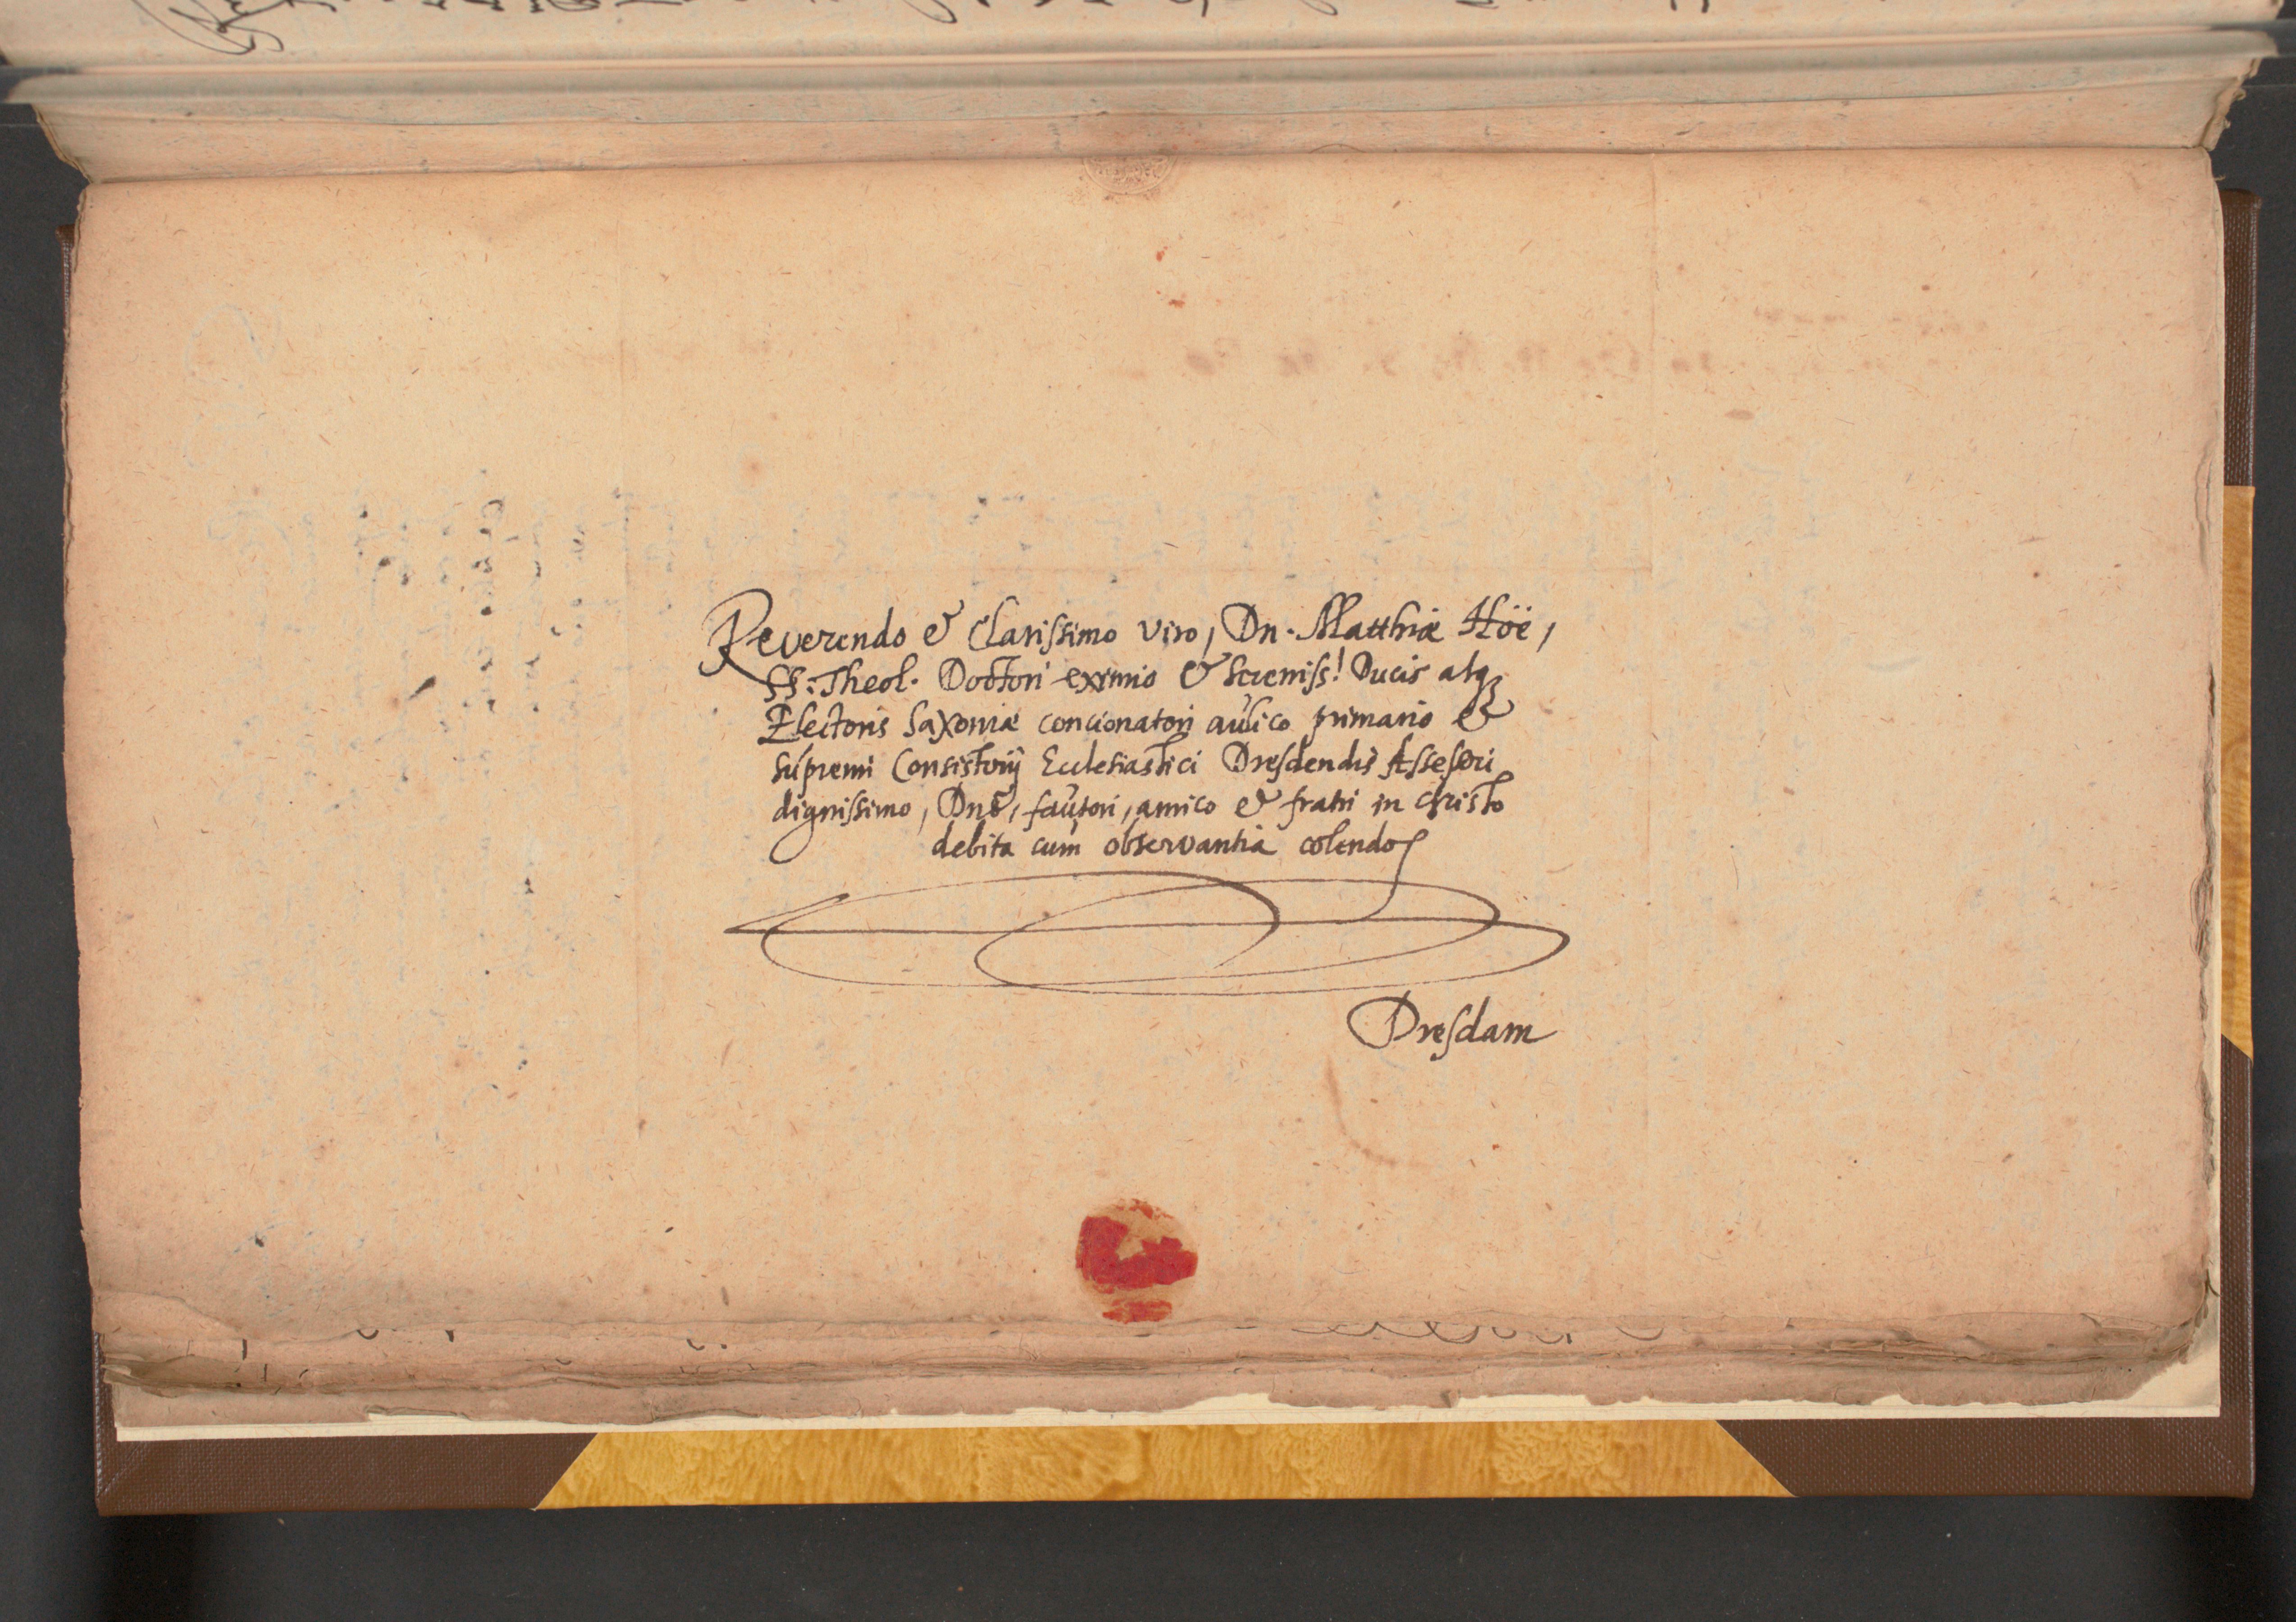 Reverendo & Clarissimo viro, Dn. Matthiæ Höë,
SS: Theol. Doctori eximio & Sereniss! Ducis atq;
Electoris Saxoniæ concionatori aulico primario &
supremi Consistorij Ecclesiastici Dresdensis Assessori
dignissimo, Dnō, fautori, amico & fratri in christo
debita cum observantia colendo
Dresdam